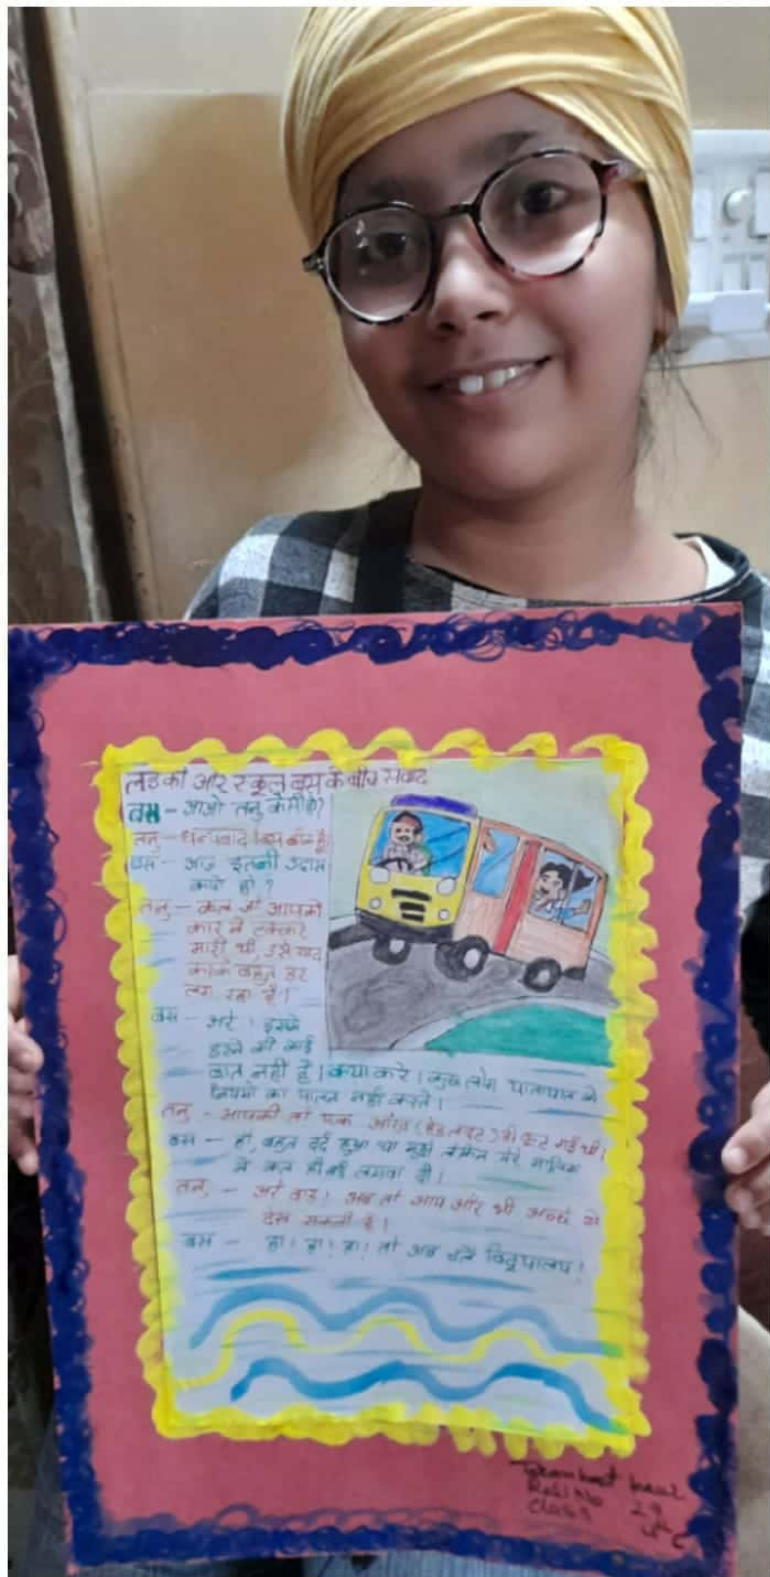 लडकी और स्कूल बस के बीच संवाद
बस - आओ तनु कैसी हो?
तनु - धन्यवाद बस
बस - आज इतनी उदास
क्यों हो?
तनु - कल जो आपको
कार ने टक्कर
मारी थी, उसे याद
करके बहुत डर
लग रहा है।
बस - अरे! इसमें
डरने की कोई
बात नहीं है। क्या करे। कुछ लोग यातायात के
नियमों का पालन नहीं करते।
तनु - आपकी तो एक आँख (हेड लाइट) भी फूट गई थी।
बस - हाँ, बहुत दर्द हुआ था मुझे लेकिन मेरे मालिक
ने कल ही नई लगवा दी।
तनु - अरे वाह! अब तो आप और भी अच्छे से
देख सकती है।
बस - हा! हा! हा! तो अब चले विद्यालय!
Kaur
Roll No 29
Class